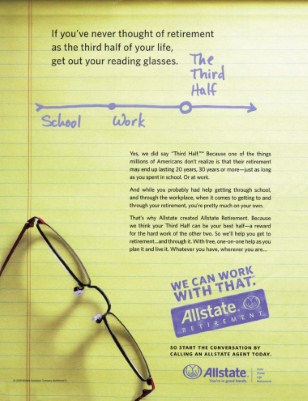 If you've never thought of retirement
as the third half of your life,
get out your reading glasses.
The
Third
Half
School
Work
Yes, we did say "Third Half.℠" Because one of the things
millions of Americans don't realize is that their retirement
may end up lasting 20 years, 30 years or more—just as long
as you spent in school. Or at work.
And while you probably had help getting through school,
and through the workplace, when it comes to getting to and
through your retirement, you're pretty much on your own.
That's why Allstate created Allstate Retirement. Because
we think your Third Half can be your best half—a reward
for the hard work of the other two. So we'll help you get to
retirement...and through it. With free, one-on-one help as you
plan it and live it. Whatever you have, wherever you are...
WE CAN WORK
WITH THAT.
Allstate
RETIREMENT
SO START THE CONVERSATION BY
CALLING AN ALLSTATE AGENT TODAY.
Allstate
You're in good hands.